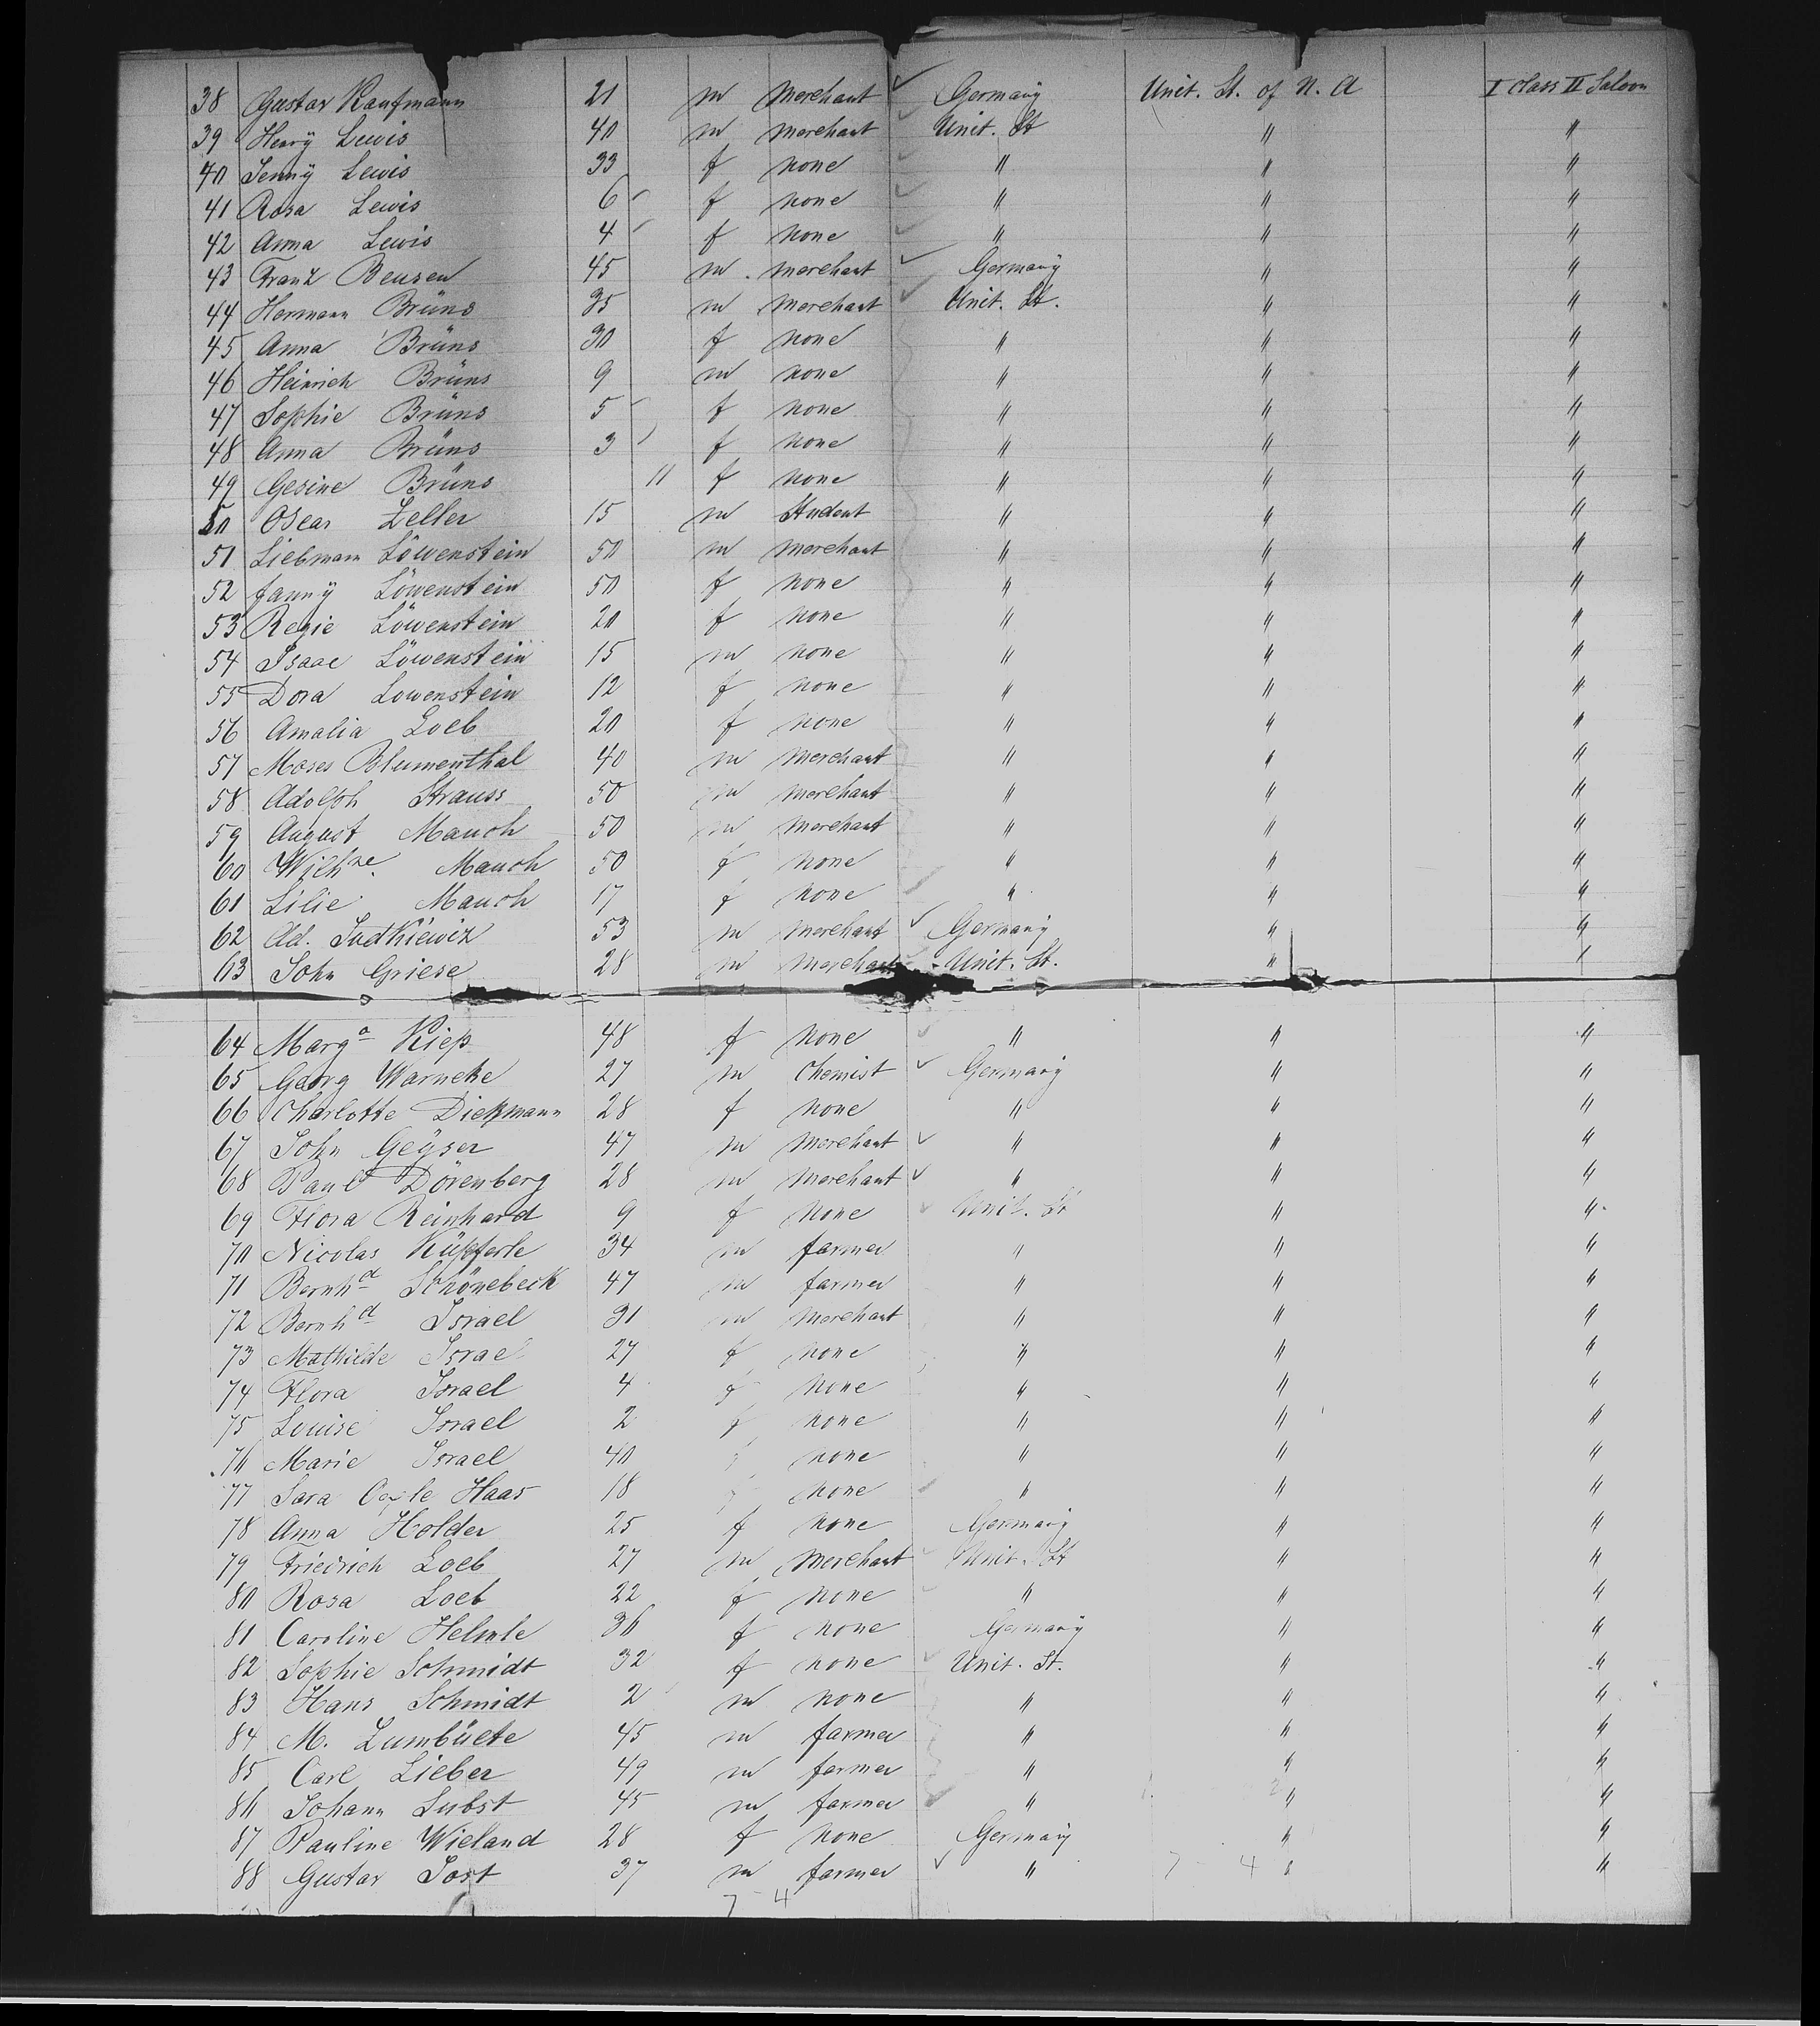 38 Gustav Kaufmann 21 m merchant Germany Unit. St. of N. A I class II Saloon
39 Henry Lewis 40 m merchant Unit. St " "
40 Jenny Lewis 33 f none " " "
41 Rosa Lewis 6 f none " " "
42 Anna Lewis 4 f none " " "
43 Franz Bensen 45 m merchant Germany " "
44 Hermann Brüns 35 m merchant Unit. St. " "
45 Anna Brüns 30 f none " " "
46 Heinrich Brüns 9 m none " " "
47 Sophie Brüns 5 f none " " "
48 Anna Brüns 3 f none " " "
49 Gesine Brüns 11 f none " " "
50 Oscar Zeller 15 m Student " " "
51 Liebmann Löwenstein 50 m merchant " " "
52 Fanny Löwenstein 50 f none " " "
53 Regie Löwenstein 20 f none " " "
54 Isaac Löwenstein 15 m none " " "
55 Dora Lowenstein 12 f none " " "
56 Amalia Loeb 20 f none " " "
57 Moses Blumenthal 40 m merchant " " "
58 Adolph Strauss 50 m merchant " " "
59 August Mauch 50 m merchant " " "
60 Wilhne. Mauch 50 f none " " "
61 Lilie Mauch 17 f none " " "
62 Ad. Judkiewiz 53 m merchant Germany " "
63 John Griese 28 m merchant Unit. St. " "
64 Marga Kiep 48 f none " " "
65 Georg Warneke 27 m Chemist Germany " "
66 Charlotte Diekmann 28 f none " " "
67 John Geyser 47 m merchant " " "
68 Paul Dörenberg 28 m merchant " " "
69 Flora Reinhard 9 f none Unit. St " "
70 Nicolas Küpferle 34 m farmer " " "
71 Bernhd Schönebeck 47 m farmer " " "
72 Bernhd Israel 31 m merchant " " "
73 Mathilde Israel 27 f none " " "
74 Flora Israel 4 f none " " "
75 Louise Israel 2 f none " " "
76 Marie Israel 40 f none " " "
77 Sara Haas 18 f none " " "
78 Anna Holder 25 f none Germany " "
79 Friedrich Loeb 27 m merchant Unit. St " "
80 Rosa Loeb 22 f none " " "
81 Caroline Helmle 36 f none Germany " "
82 Sophie Schmidt 32 f none Unit. St. " "
83 Hans Schmidt 2 m none " " "
84 M. Lumbüete 45 m farmer " " "
85 Carl Lieber 49 m farmer " " "
86 Johann Subst 45 m farmer " " "
87 Pauline Wieland 28 f none Germany " "
88 Gustav Jost 37 m farmer " 7 4 " "
7 4